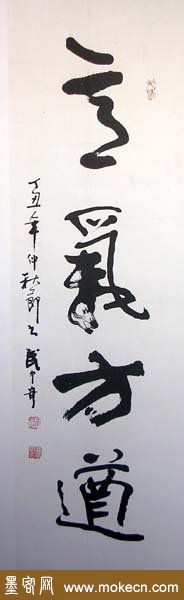 意氣方遒
丁丑年仲秋節 武中奇
墨客网 www.mokecn.com